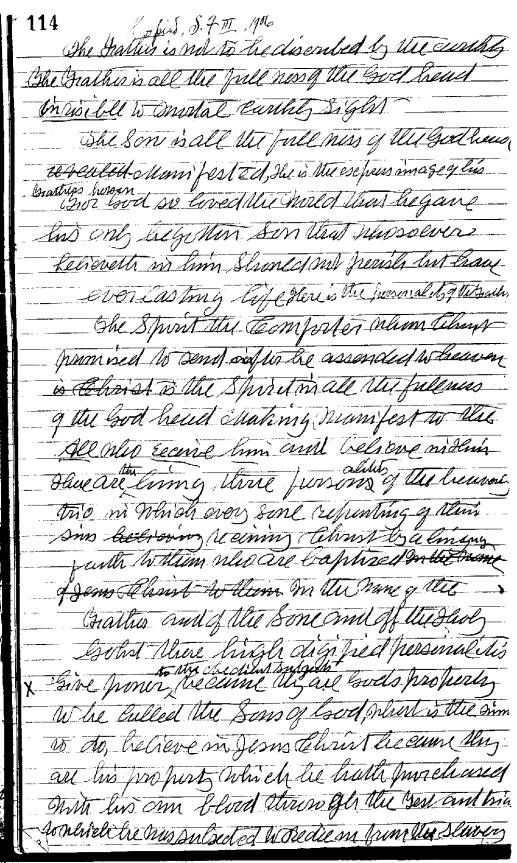 114
Copied, S. F III, 1906
The Father is not to be discribed by the earthly
The Father is all the full ness of the God head
invisible to mortal earthly sight
The Son is all the full ness of the God head
revealed Manifested, He is the express image of his
Fathers person
For God so loved the world that he gave
his only begotten Son that whosoever
believeth in him should not perish but have
everlasting life Here is the personality of the Father
The Spirit the Comforter whom Christ
promised to send after he assended to heaven
is Christ is the Spirit in all the fullness
of the God head making manifest to the
All who receive him and believe in Him
There are the living three personalities of the heavenly
trio in which every sone repenting of their
sins believing receiving Christ by a living
faith to them who are baptized in the name
of Jesus Christ to them in the Name of the
Father and of the Sone and off the Holy
Gohst these high digified personalitis
to the obedient subjects
X Give power because they are Gods property
to be called the Sons of God, what is the sinner
to do, believe in Jesus Christ because they
are his property which he hath purchased
with his own blood through the test and trial
to which he was subjected to redeem from the slavery